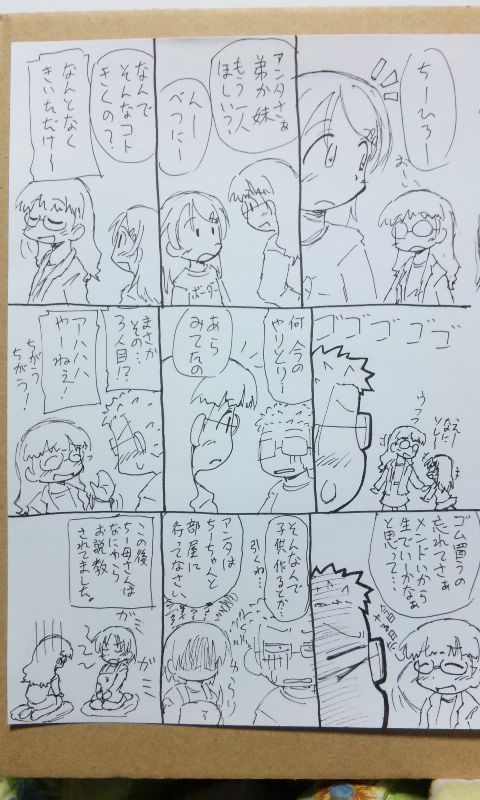 ちーひろー
おーい
アンタさぁ
弟か妹
もう一人
ほしい?
んー
べつにー
ボーダー
なんで
そんなコト
きくの?
なんとなく
きいただけ〜
ゴゴゴゴゴ
ウフフ
えー
なに
ソレー
何 今の
やりとり〜
あら
みてたの
まさか
その…
3人目!?
アハハハ
やーねぇ!
ちがう
ちがう!
ゴム買うの
忘れてさぁ
メンドいから
生でいーかなぁ
と思って…
そんなんで
子供作るとか…
引くわ…
アンタは
ちーちゃんと
部屋に
行ってなさい
この後
ちー母さんは
なにやら
お説教
されてました。
ガ
ガ